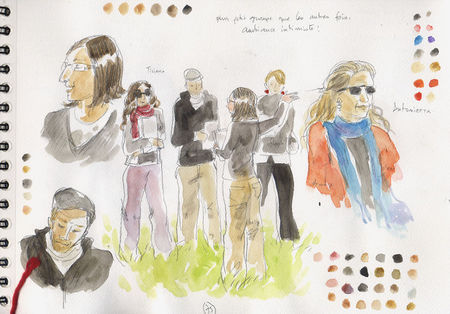 plus petit groupe que les autres fois.
Ambiance intimiste!
Ticiana
Antonietta
75